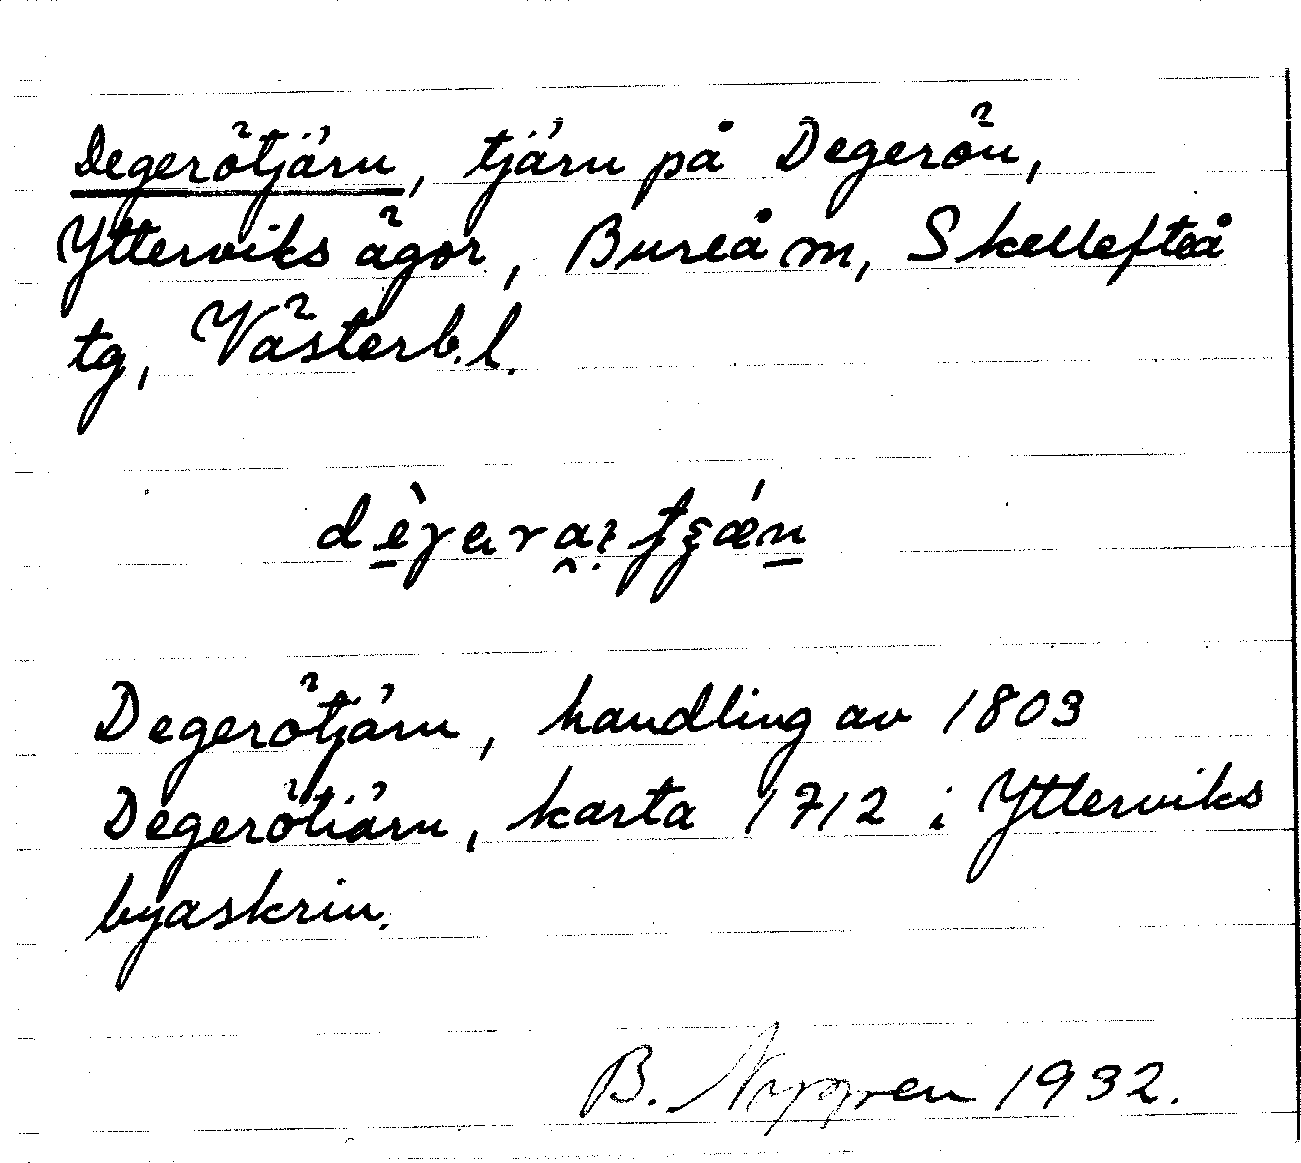 Degerötjärn, tjärn på Degerön,
Ytterviks ägor, Bureå m, Skellefteå
tg, Västerb.l.
Degerötjärn, handling av 1803
Degerötiärn, karta 1712 i Ytterviks
byaskrin.
B. 1932.